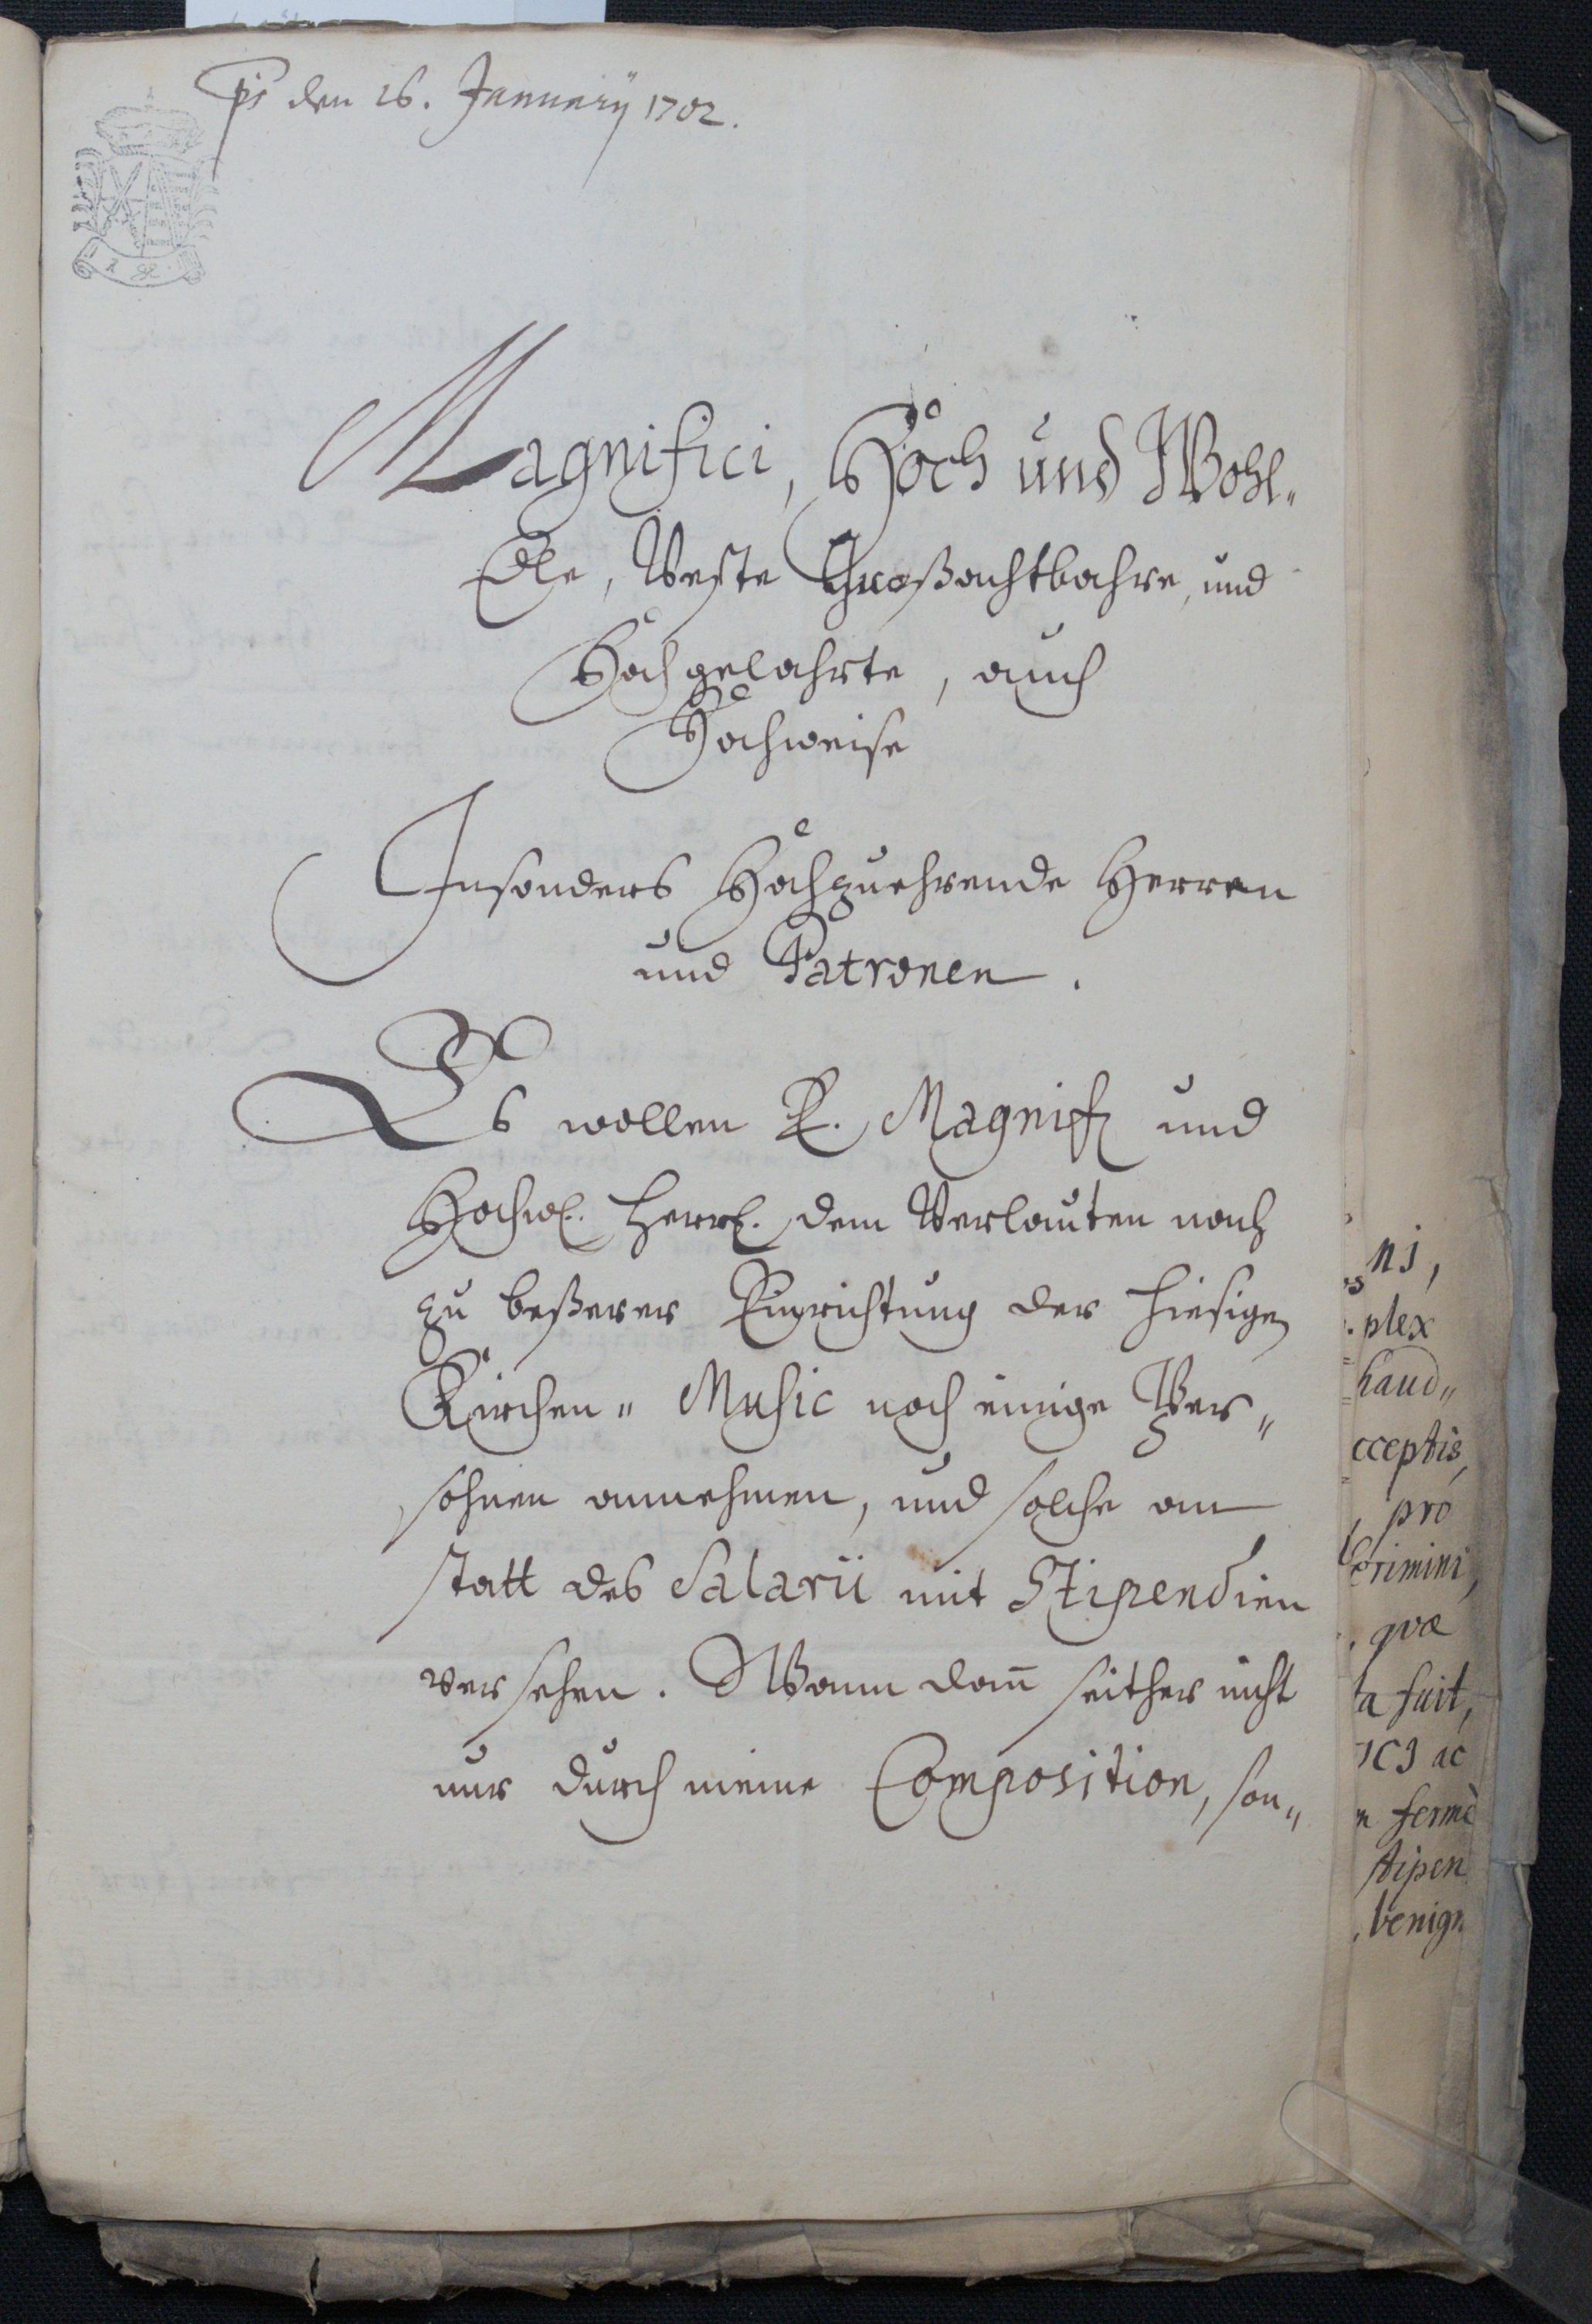 ps den 26. Januarij 1702.
Magnifici, Hoch und Wohl„
Edle, Veste Großachtbahre, und
Hochgelahrte, auch
Hochweise
Insonders Hochzuehrende Herren
und Patronen.
Es wollen E. Magnif. und
Hochw. Herrl. dem Verlauten nach
zu beßerer Einrichtung der hiesigen
Kirchen„ Music noch einige Per„
sohnen annehmen, und solche an
statt des Salarii mit Stipendien
versehen. Wann dañ seither nicht
nur durch meine Composition, son„
nj,
plex
haud„
cceptis,
pro
crimini,
qvæ
ta fuit,
ICJ ac
m fermè
stipen
benign